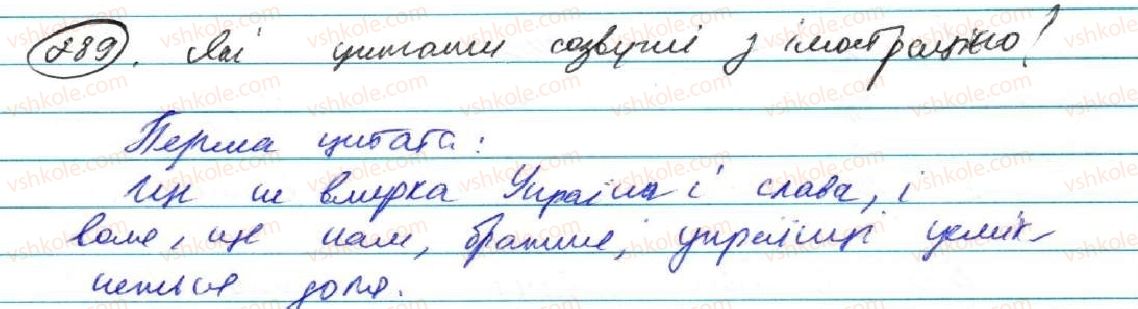 289. Які цитати созвучні з ілюстрацією?
Перша цитата:
Ще не вмерла Україна і слава, і
воля, ще нам, браття, українці усміх-
неться доля.